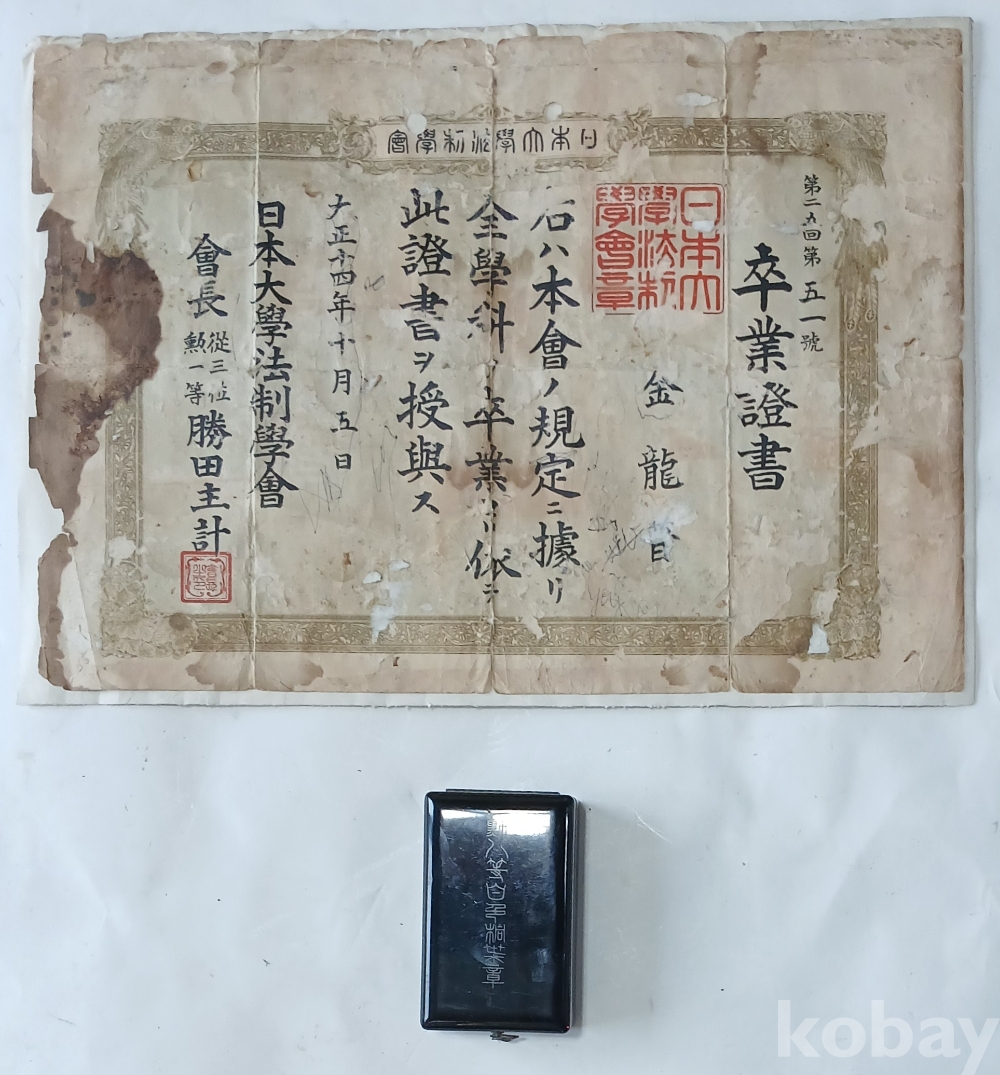 日本大學法制學會
第二九回第五一號
卒業證書
日本大
學法制
學會章
金龍
右ハ本會ノ規定ニ據リ
全學科ノ卒業 依テ
此證書ヲ授與ス
大正十四年十月五日
日本大學法制學會
會長 從三位 勲一等 勝田主計
勲八等白色桐葉章
kobay